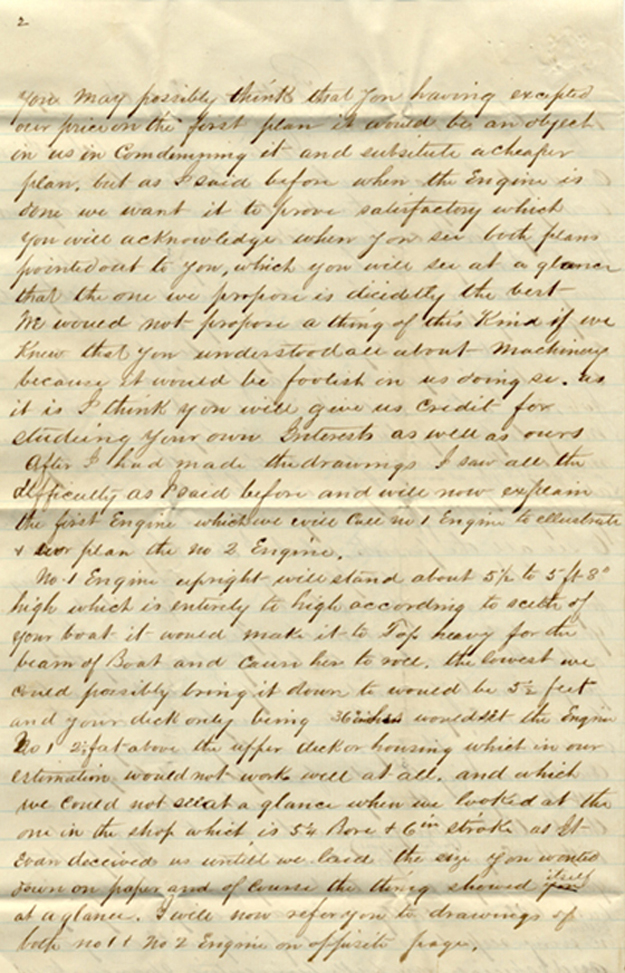 2
you may possibly think that you having excepted
our price on the first plan it would be an object
in us in Comdemning it and substitute a cheaper
plan. but as I said before when the Engine is
done we want it to prove satisfactory which
you will acknowledge when you see both plans
pointed out to you, which you will see at a glance
that the one we propose is dicidetly the best
We would not propose a thing of this Kind if we
Knew that you understood all about Machinery
because it would be foolish on us doing so. as
it is I think you will give us Credit for
studiing your own Interests as well as ours
After I had made the drawings I saw all the
difficulty as I said before and will now explain
the first Engine which we will Call no 1 Engine to ellustrate
& our plan the no 2 Engine.
No. 1 Engine upright will stand about 5½ to 5 ft 8"
high which is entirely to high according to of
your boat it would make it to Top heavy for the
beam of Boat and cause her to roll. the lowest we
could possibly bring it down to would be 5½ feet
and your deck only being 36 inches would set the Engine
No 1 2½ feet above the upper deck or housing which in our
estemation would not work well at all. and which
we could not see at a glance when we looked at the
one in the shop which is 5¼ Bore & 6 in stroke as It
Even deceived us untill we laid the size you wanted
down on paper and of course the thing showed itself
at a glance. I will now refer you to drawings of
both no 1 & No 2 Engine on oppisite page.